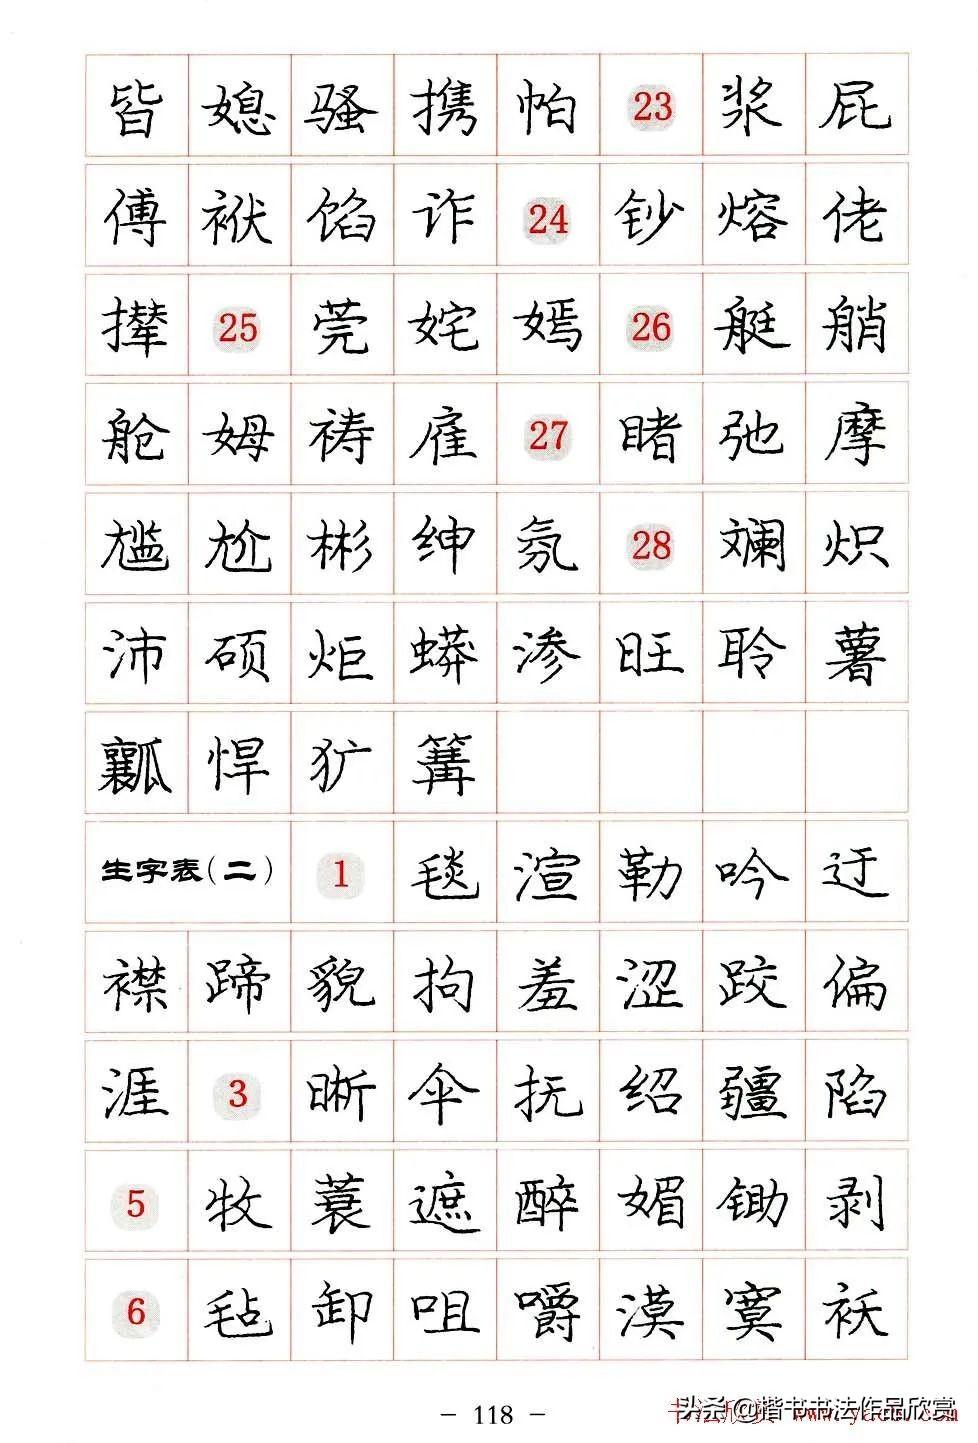 皆 媳 骚 携 帕 23 浆 屁
傅 袱 馅 诈 24 钞 熔 佬
撵 25 莞 姹 嫣 26 艇 艄
舱 姆 祷 雇 27 睹 弛 摩
尴 尬 彬 绅 氛 28 斓 炽
沛 硕 炬 蟒 渗 旺 聆 薯
瓤 悍 犷 篝
生字表(二) 1 毯 渲 勒 吟 迂
襟 蹄 貌 拘 羞 涩 跤 偏
涯 3 晰 伞 抚 绍 疆 陷
5 牧 蓑 遮 醉 媚 锄 剥
6 毡 卸 咀 嚼 漠 寞 袄
- 118 -
头条@楷书书法作品欣赏